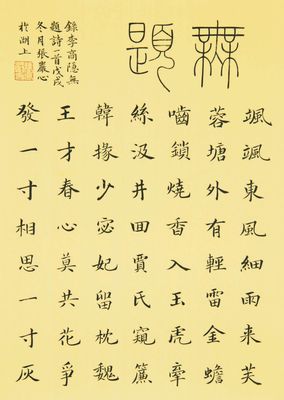 無題
颯颯東風細雨来芙
蓉塘外有輕雷金蟾
嚙鎖燒香入玉虎牽
絲汲井囬賈氏窺簾
韓掾少宓妃留枕魏
王才春心莫共花爭
發一寸相思一寸灰
錄李商隱無
題詩一首戊戌
冬月張嚴心
於湖上